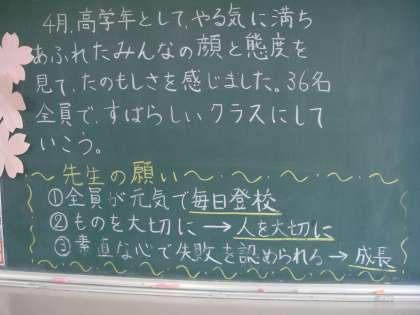 4月、高学年として、やる気に満ち
あふれたみんなの顔と態度を
見て、たのもしさを感じました。36名
全員で、すばらしいクラスにして
いこう。
〜先生の願い〜・〜・〜・〜・〜
①全員が元気で毎日登校
②ものを大切に→人を大切に
③素直な心で失敗を認められる→成長